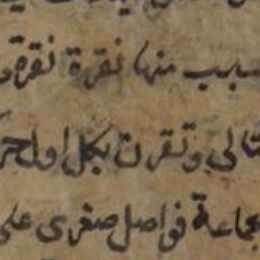 سبب منها نقرة نقرة و
تالى وتقرن بكل اول جز
جماعة فواصل صغرى على